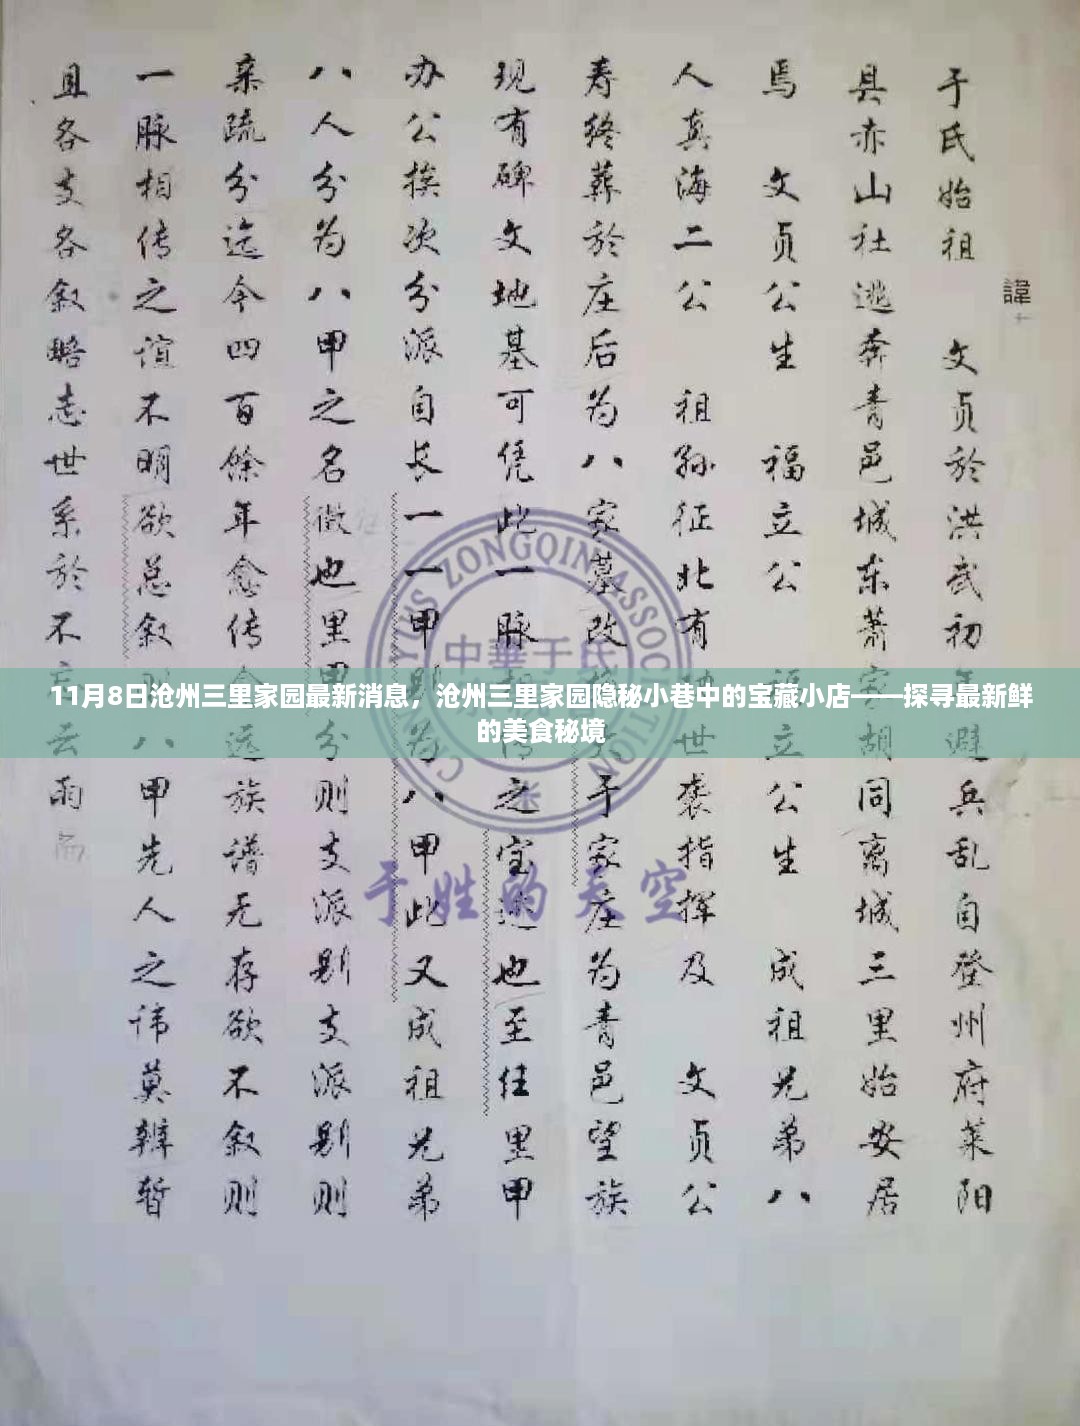 于氏始祖 文贞於洪武初年避兵乱自登州府莱阳
諱
县赤山社逃奔青邑城东萧家胡同离城三里始安居
焉 文贞公生 福立公 福立公生 成祖兄弟八
人真海二公 祖孙征北有功世袭指挥及 文贞公
寿终葬於庄后为八家墓改 于家庄为青邑望族
现有碑文地基可凭此一脉相传之宝迹也至往里甲
办公挨次分派自长一一甲则为八甲此又成祖兄弟
八人分为八甲之名微也里甲分则支派别支派别则
亲疏分迄今四百馀年愈传愈远族谱无存欲不叙则
一脉相传之谊不明欲总叙则八甲先人之讳莫辨暂
且各支各叙略志世系於不忘云雨
11月8日沧州三里家园最新消息，沧州三里家园隐秘小巷中的宝藏小店——探寻最新鲜
的美食秘境
ZONGQIN ASSOC
中華于氏
于姓的天空